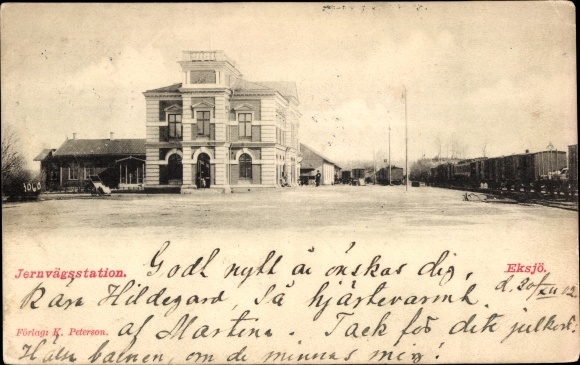 1060
Jernvägsstation.
Eksjö.
Godt nytt år önskas dig,
d. 30/XII 12
Kära Hildegard, så hjärtevarmt
af Martina. Tack för ditt julkort.
Förlag: K. Peterson.
Hälsa barnen, om de minnas mig!